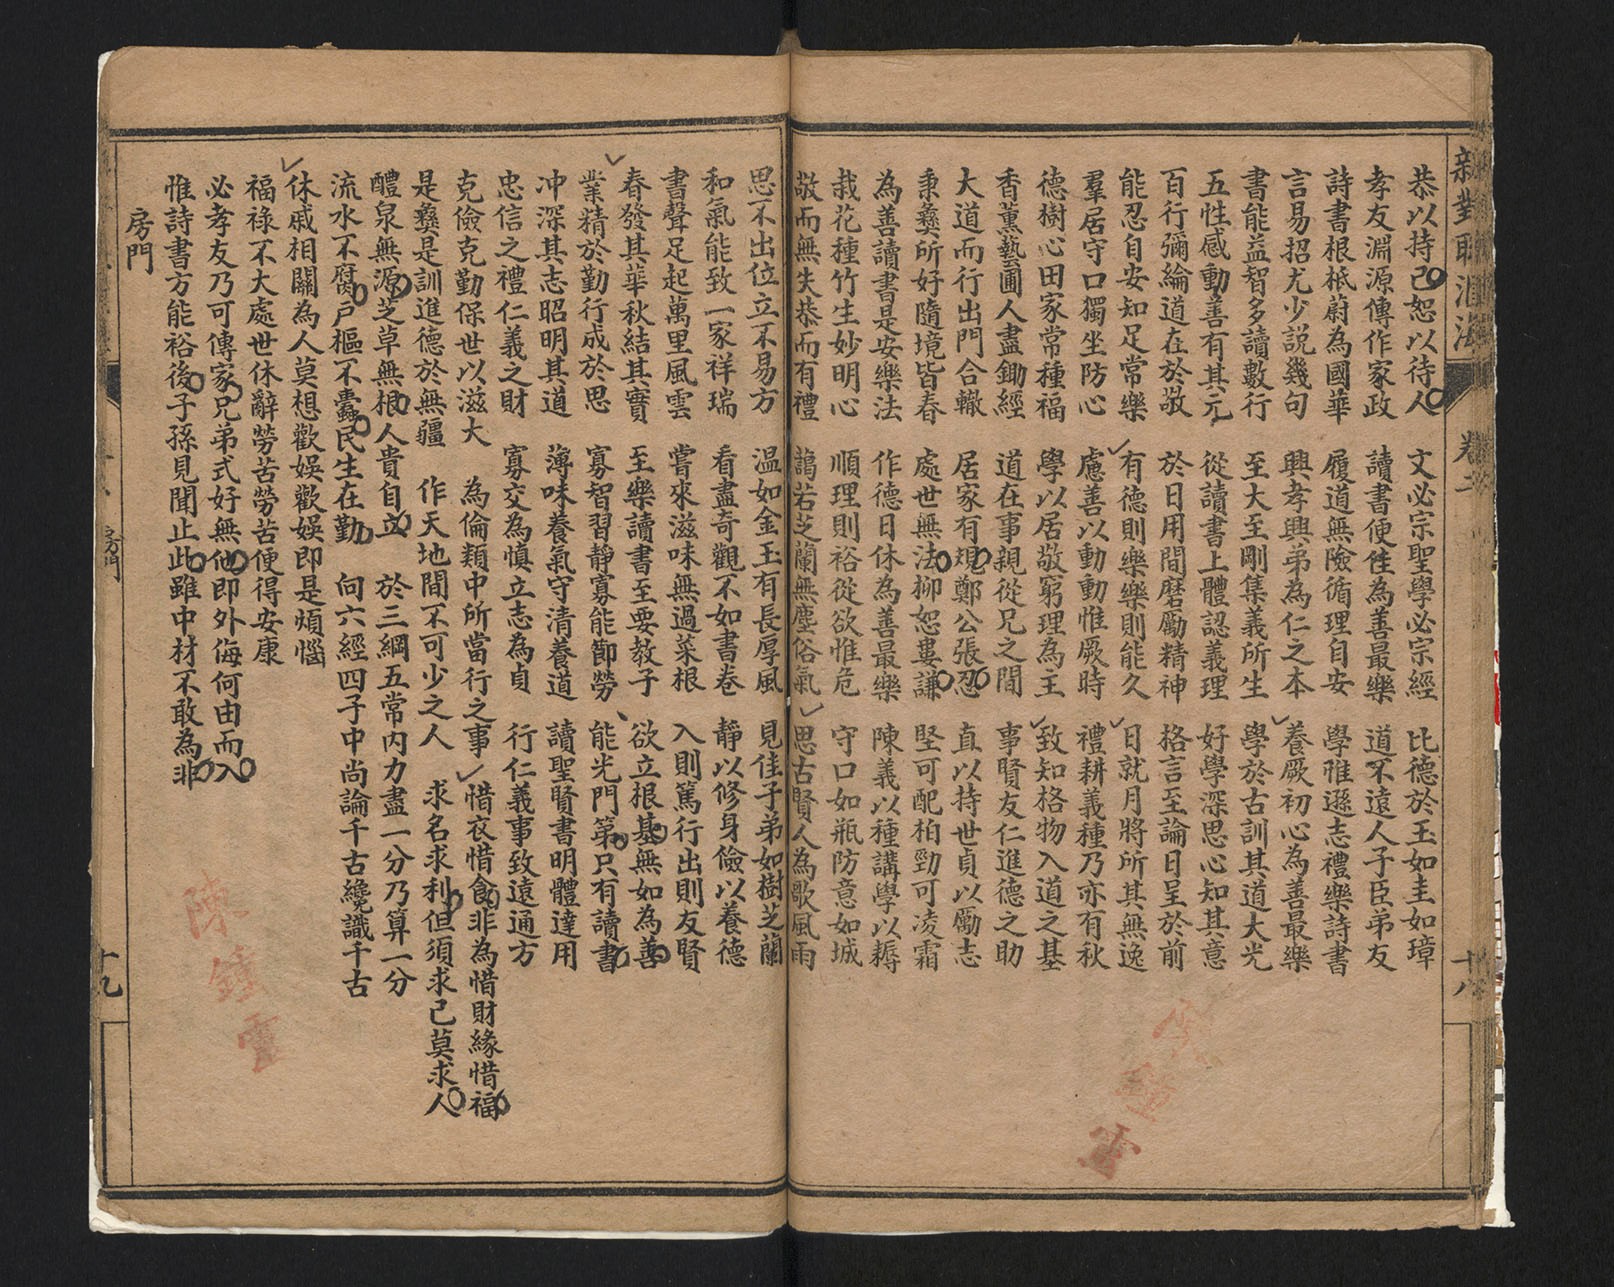 新對聯滙海 卷二 十八
恭以持己恕以待人 文必宗聖學必宗經 比德於玉如圭如璋
孝友淵源傳作家政 讀書便佳為善最樂 道不遠人子臣弟友
詩書根柢蔚為國華 履道無險循理自安 學惟遜志禮樂詩書
言易招尤少説幾句 興孝興弟為仁之本 養厥初心為善最樂
書能益智多讀數行 至大至剛集義所生 學於古訓其道大光
五性感動善有其元 從讀書上體認義理 好學深思心知其意
百行彌綸道在於敬 於日用間磨勵精神 格言至論日呈於前
能忍自安知足常樂 有德則樂樂則能久 日就月將所其無逸
羣居守口獨坐防心 慮善以動動惟厥時 禮耕義種乃亦有秋
德樹心田家常種福 學以居敬窮理為主 致知格物入道之基
香薰藝圃人盡鋤經 道在事親從兄之間 事賢友仁進德之助
大道而行出門合轍 居家有規鄭公張忍 直以持世貞以勵志
秉彝所好隨境皆春 處世無法柳恕婁謙 堅可配柏勁可凌霜
為善讀書是安樂法 作德日休為善最樂 陳義以種講學以耨
栽花種竹生妙明心 順理則裕從欲惟危 守口如瓶防意如城
敬而無失恭而有禮 藹若芝蘭無塵俗氣 思古賢人為歌風雨
思不出位立不易方 温如金玉有長厚風 見佳子弟如樹芝蘭
和氣能致一家祥瑞 看盡奇觀不如書卷 靜以修身儉以養德
書聲足起萬里風雲 嘗來滋味無過菜根 入則篤行出則友賢
春發其華秋結其實 至樂讀書至要教子 欲立根基無如為善
業精於勤行成於思 寡智習靜寡能節勞 能光門第只有讀書
冲深其志昭明其道 薄味養氣守清養道 讀聖賢書明體達用
忠信之禮仁義之財 寡交為慎立志為貞 行仁義事致遠通方
克儉克勤保世以滋大 為倫類中所當行之事 惜衣惜食非為惜財緣惜福
是彝是訓進德於無疆 作天地間不可少之人 求名求利但須求己莫求人
醴泉無源芝草無根人貴自立 於三綱五常內力盡一分乃算一分
流水不腐户樞不蠹民生在勤 向六經四子中尚論千古纔識千古
休戚相關為人莫想歡娛歡娛即是煩惱
福祿不大處世休辭勞苦勞苦便得安康
必孝友乃可傳家兄弟式好無他即外侮何由而入
惟詩書方能裕後子孫見聞止此雖中材不敢為非
房門
房門 十九
陳鐘雲